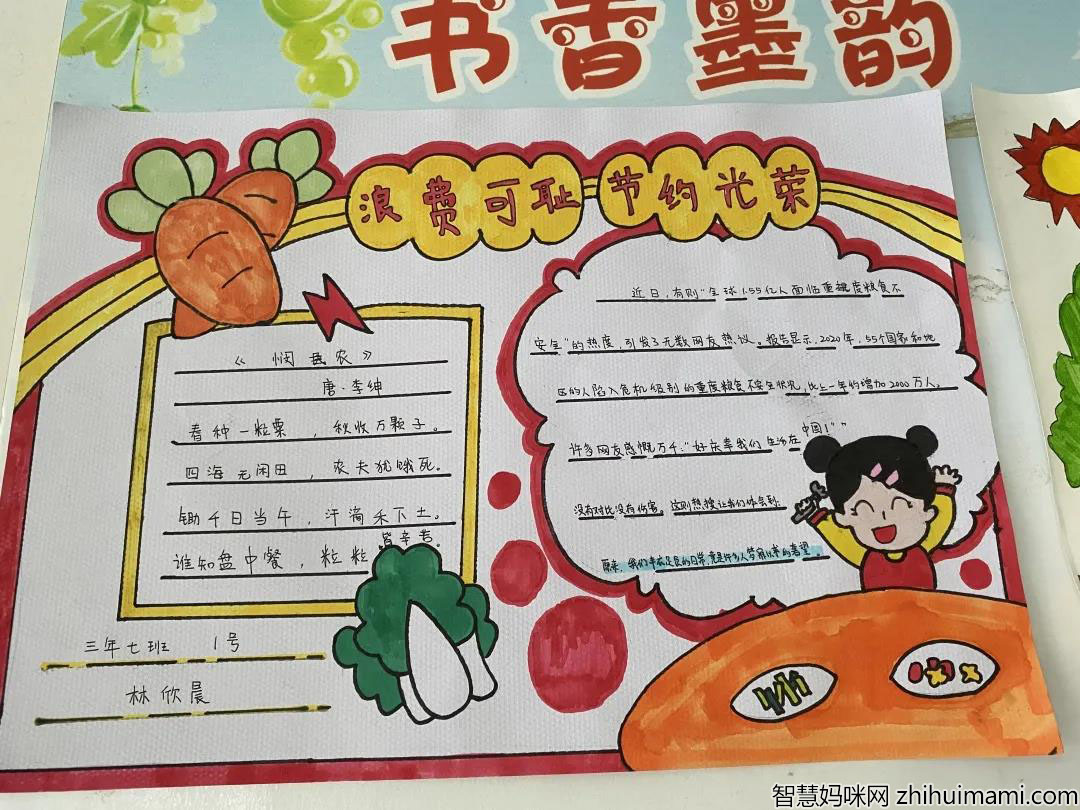 书香墨韵
浪费可耻 节约光荣
《悯农》
唐·李绅
春种一粒粟，秋收万颗子。
四海无闲田，农夫犹饿死。
锄禾日当午，汗滴禾下土。
谁知盘中餐，粒粒皆辛苦。
三年七班 1号
林欣晨
近日，有则"全球1.55亿人面临重度粮食不
安全"的热度，引发了无数网友热议。报告显示，2020年，55个国家和地
区的人陷入危机级别的重度粮食不安全状况，比上一年约增加2000万人。
许多网友感慨万千："好庆幸我们生活在中国！"
没有对比没有伤害。这则热搜让我们体会到：
原来，我们丰衣足食的日常，竟是许多人梦寐以求的奢望
智慧妈咪网 zhihuimami.com